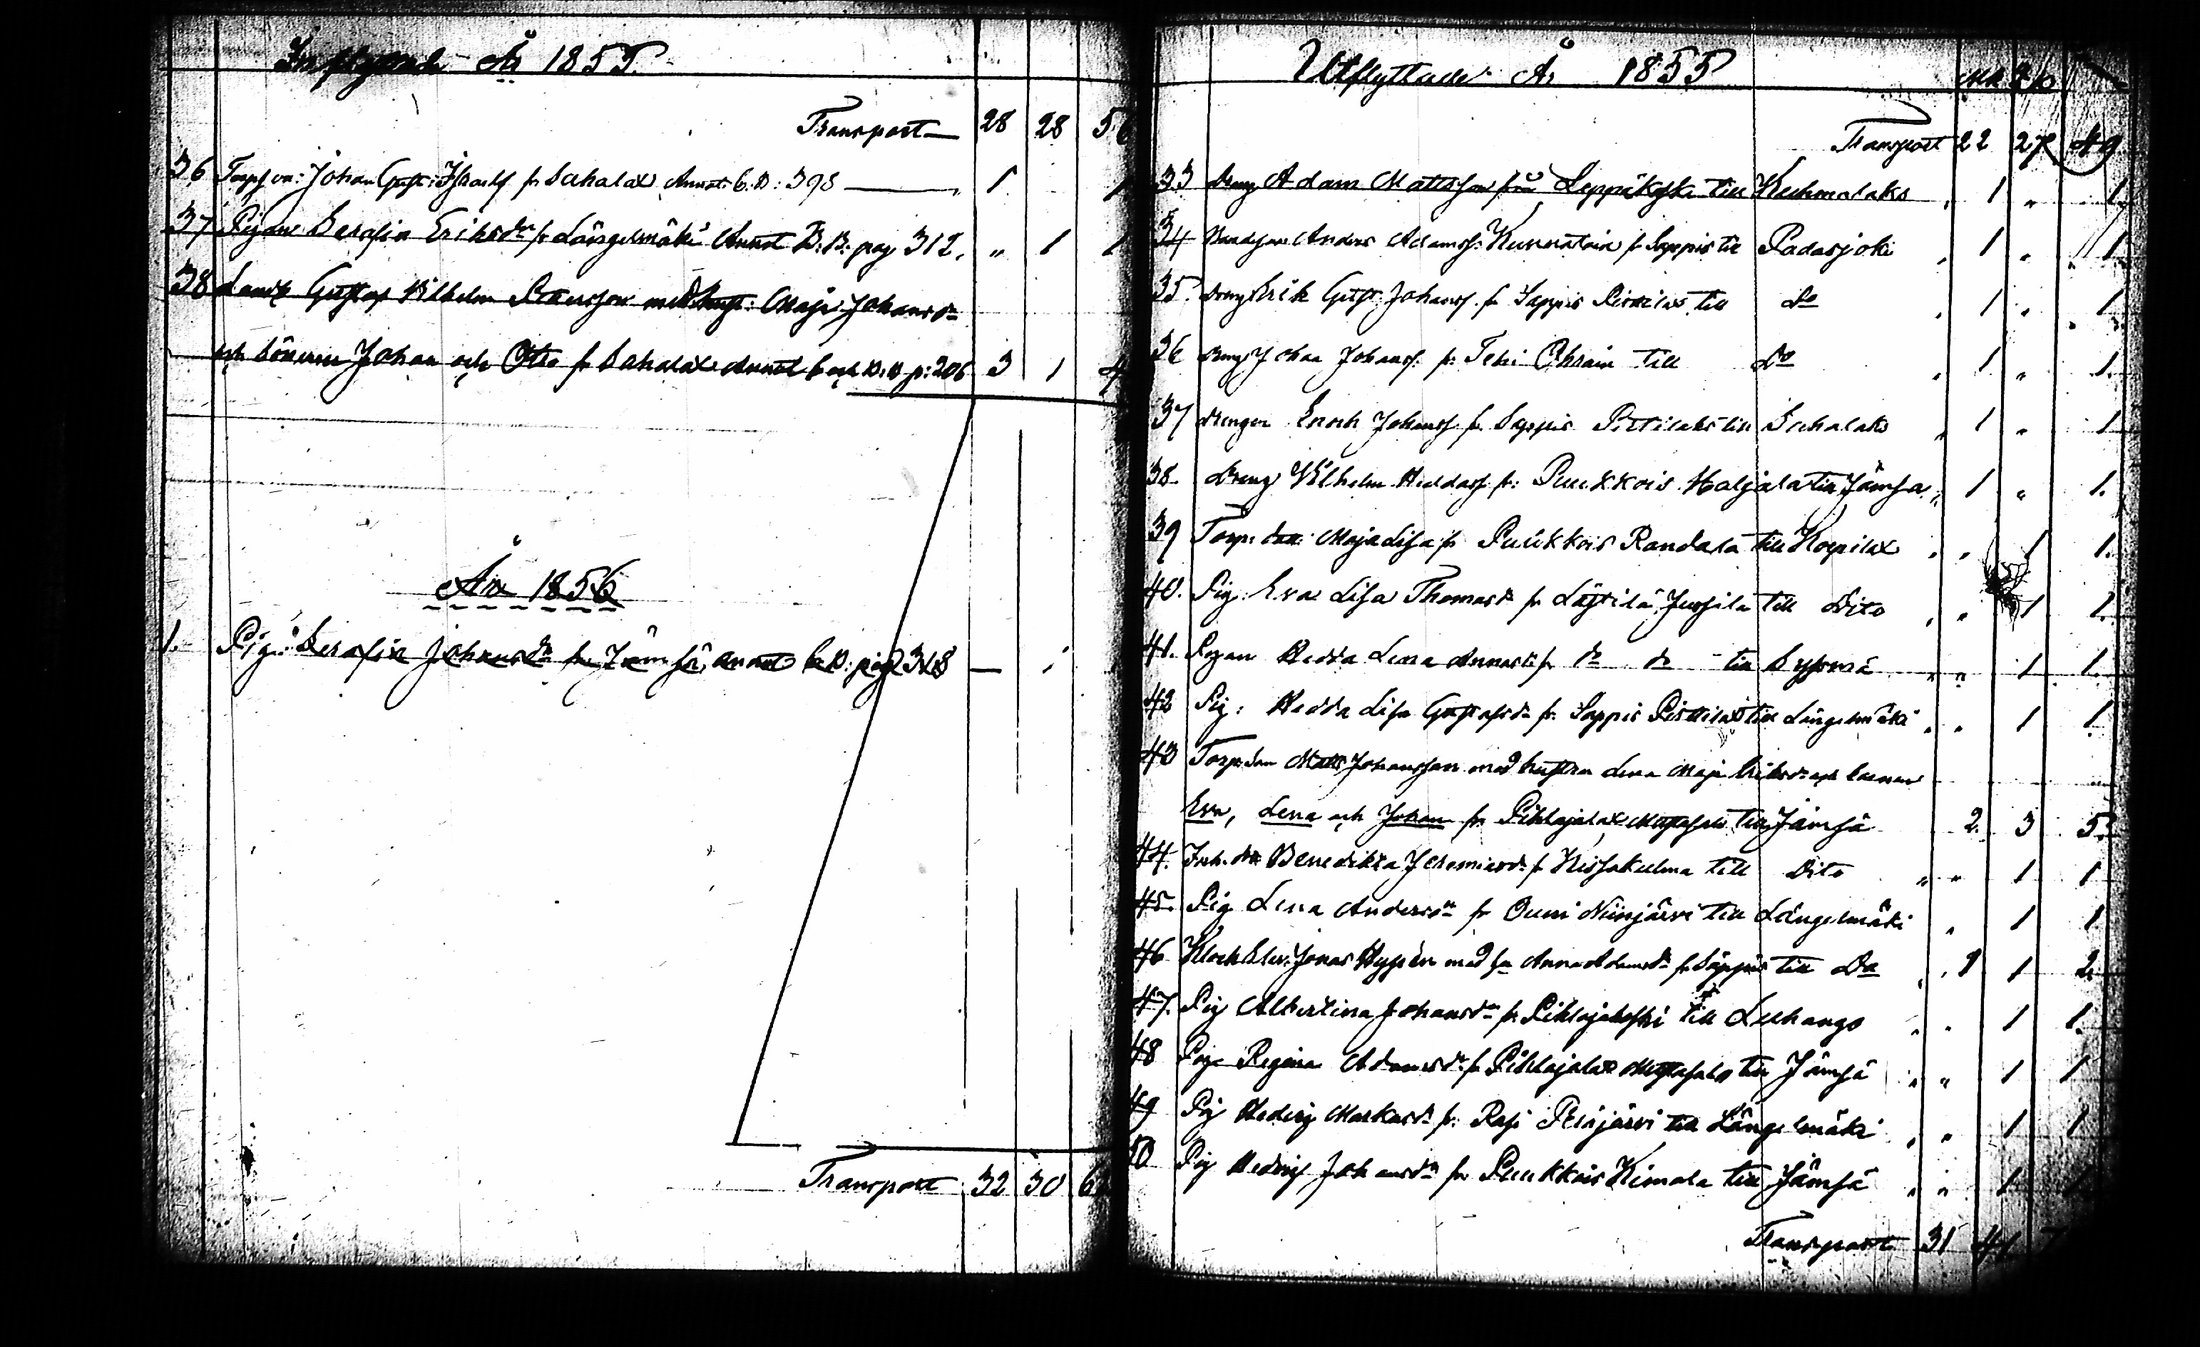 Inflyttade År 1855.
Transport 28 28 56
36 Torps on: Johan Gust: Israelss fr Sahalax Annot. C.B: 398 1 1
37 Pigan Serafia Eriksdr fr Längelmäki Annot B.B: pag 312, " 1 1
38 Gustaf Wilhelm Pettersson med hust: Maja Johansdr
och sönerne Johan och Otto fr Sahalax Annot p: 206 3 1 4
År 1856
1. Pig: Serafia Johansdr fr Jämsä, annot pag 348 — 1
Transport 32 30 6
Utflyttade År 1855
Mk Qk
Transport 22 27 49
33 Dreng Adam Mattsson från Leppäkoski till Kuhmalaks 1 " 1.
34 Anders Adamss: Kunnatain fr Seppis till Padasjoki 1 " 1
35. Dreng Erik Gust: Johanss. fr Seppis Pirttilax till do 1 " 1
36 Dreng Johan Johanss: fr: Tehi Ohrain till do 1 " 1.
37 Drengen Enoch Johanss. fr. Seppis Pirttilaks till Sahalaks 1 " 1
38. Dreng Wilhelm Heddass. fr: Puukkois Haljala till Jämsä 1 " 1.
39 Torp. dr Maja Lisa fr Puukkois Randala till Korpilax " 1 1.
40. Pig: Eva Lisa Thomasdr fr Lästilä Jussila till Dito " 1 1.
41. Pigan Hedda Lena Annasdr fr do do till Sysmä " 1 1.
42 Pig: Hedda Lisa Gustafsdr fr. Seppis Pirttilax till Längelmäki " 1 1.
43 Torp.son Matts Johansson med hustru Lena Maja Eriksdr och barnen
Eva, Lena och Johan fr Pihlajalax till Jämsä 2. 3 5.
44. Inh. dr Benedikta Jeremiasdr fr Kissakulma till Dito " 1 1
45. Pig Lena Andersdr fr Ouni Niinjärvi till Längelmäki " 1 1
46 Jonas Hypén med hu Anna Adamsdr fr Seppis till Do 1 1 2
47. Pig Albertina Johansdr fr Pihlajakoski till Luhango " 1 1.
48 Pig. Regina Adamsdr fr Pihlajalax till Jämsä " 1 1
49 Pig Hedvig Markusdr fr. Rasi Petäjärvi till Längelmäki " 1 1
50 Pig Hedvig Johansdr fr Puukkois Kimola till Jämsä " 1 1
Transport 31 41 7